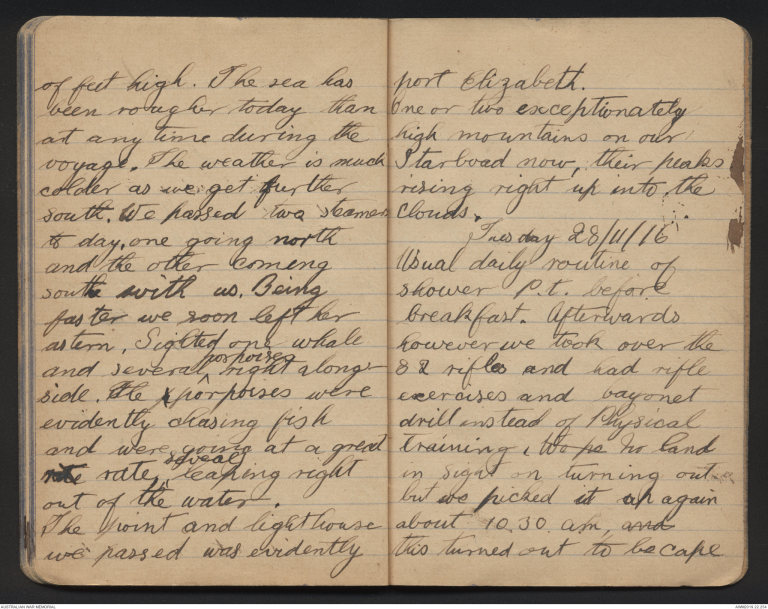 of feet high. The sea has
been rougher today than
at any time during the
voyage. The weather is much
colder as we get further
south. We passed two steamers
to day, one going north
and the other comeng
south with us. Being
faster we soon left her
astern. Sighted one whale
porpoises
and several right along-
side. The porpoises were
evidently chasing fish
and were going at a great
several
rate, leaping right
out of the water.
The point and lighthouse
we passed was evidently
port Elizabeth.
One or two exceptionately
high mountains on our
Starboad now, their peaks
rising right up into the
clouds.
Tuesday 28/11/16
Usual daily routine of
shower P.t. before
breakfast. Afterwards
however we took over the
82 rifles and had rifle
exercises and bayonet
drill instead of Physical
training. No land
in sight on turning out
but we picked it up again
about 10.30. am, and
this turned out to be cape
AUSTRALIAN WAR MEMORIAL